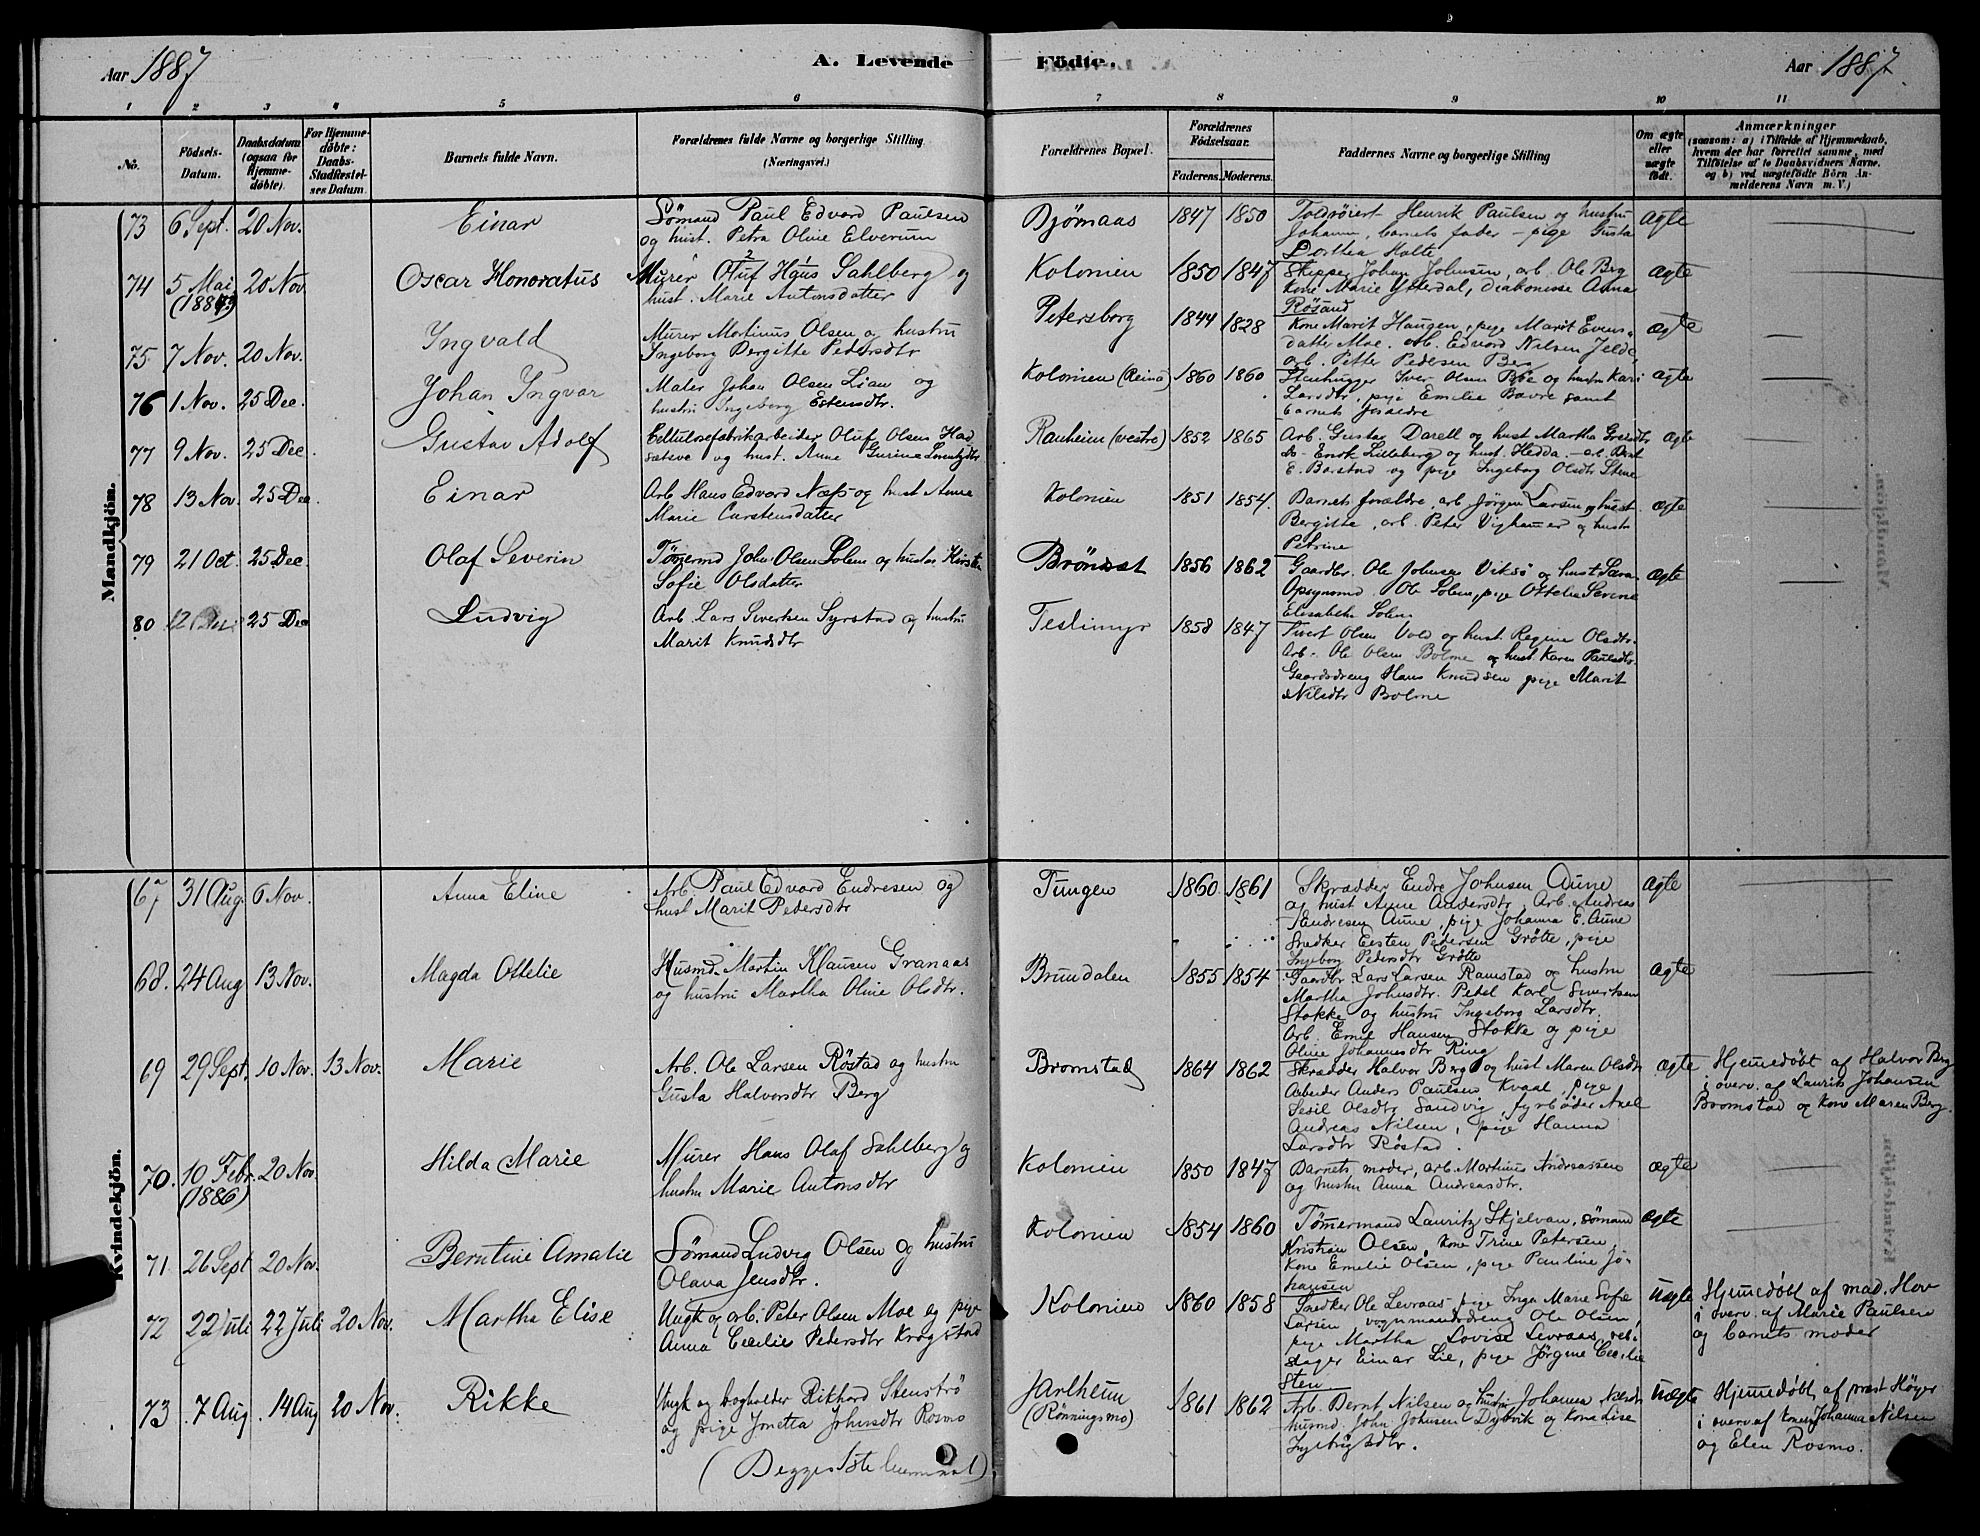 Aar 1887
A. Levende
Födte.
Aar 1887.
1 2 3 4 5 6 7 8 9 10 11
No.
Födsels-Datum.
Daabsdatum (ogsaa for Hjemmedöbte).
For Hjemmedöbte: Daabs-Stadfæstelses Datum.
Barnets fulde Navn.
Forældrenes fulde Navne og borgerlige Stilling
(Næringsvei.)
Forældrenes Bopæl.
Forældrenes Födselsaar.
Faderens. Moderens.
Faddernes Navne og borgerlige Stilling
Om ægte eller uægte födt.
Anmærkninger
(saasom: a) i Tilfælde af Hjemmedaab, hvem der har forrettet samme, med Tilföielse af to Daabsvidners Navne, og b) ved uægtefödte Börn Anmelderens Navn m. V.)
Mandkjön.
73 6 Sept. 20 Nov. Einar
Sømand Paul Edvard Paulsen
og hust. Petra Oline Elverum
Djømaas 1847 1850
Toldrôiert Henrik Paulsen og hustru
Johanna, barnets fader - pige Gusta
Dorthea Holte
ægte
74 5 Mai 20 Nov. Oscar Honoratus
Murer Oluf Hans Sahlberg og
hust. Marie Antonsdatter
Kolonien 1850 1847
Skipper Johan Johnsen, arb. Ole Berg
Kone Marie Ytterdal, Diakonisse Anna
Røsand
ægte
75 7 Nov. 20 Nov. Ingvald
Murer Martinus Olsen og hustru
Ingeborg Bergitte Pedersdtr
Petersborg 1844 1828
Kone Marit Haugen, pige Marit Evens-
datter Moe. arb. Edvard Nilsen
arb. Petter Pedersen Berg
ægte
76 1 Nov. 25 Dec. Johan Ingvar
Maler Johan Olsen Lian og
hustru Ingeborg Estensdtr.
Kolonien (Reina) 1860 1860
Stenhugger Iver Olsen Bøe og hustru Kari
Larsdtr, pige Emelie Bavre samt
barnets forældre
ægte
77 9 Nov. 25 Dec. Gustav Adolf
Cellulosefabrikarbeider Oluf Olsen
og hust. Anne Gurine Lorentzdtr
Ranheim (vestre) 1852 1865
Arb. Gustav Darell og hust Martha
Do - Enok Lilleberg og hust. Hedda. - arb. Bernt
E. Barstad og pige Ingeborg Olsdtr Stene
ægte
78 13 Nov. 25 Dec Einar
Arb Hans Edvard Næss og hust Anne
Marie Carstensdatter
Kolonien 1851 1854.
Barnets forældre, arb Jørgen Larsen og hust
Bergitte, arb. Peter Vighamer og hustru
Petrine
ægte
79 21 Oct. 25 Dec. Olaf Severin
Tømermd John Olsen Solem og hustru
Sofie Olsdatter
Brøndset 1856 1862
Gaardbr. Ole Johnsen Viksø og hust Sara-
Opsynsmd Ole Solem, pige Ottelie Serine
Elisabeth Solem
ægte
80 25 Dec Ludvig
Arb Lars Sivertsen Syrstad og hustru
Marit Knudsdtr
Teslimyr 1858 1847
Sivert Olsen Vold og hust Regine Olsdtr.
Arb - Ole Olsen Bolme og hust Karen Paulsdtr
Gaardsdreng Hans Knudsen pige Marit
Nilsdtr Bolme
Kvindekjön.
67 31 Aug. 6 Nov. Anna Eline
Arb. Paul Edvard Endresen og
hust Marit Pedersdtr
Tungen 1860 1861
Skrædder Endre Johnsen Aune
og hust Anne Andersdtr Arb. Andreas
Endresen Aune, pige Johanna E. Aune
Snedker Eesten Pedersen Grøtte, pige
Ingeborg Pedersdtr Grøtte
ægte
68. 24 Aug 13 Nov. Magda Ottelie
Husmd. Martin Klausen Granaas
og hustru Martha Oline Olsdtr.
Brundalen 1855 1854
Gaardbr. Lars Larsen Ramstad og hustru
Martha Johnsdtr. Pedel Karl Sivertsen
Stokke og hustru Ingeborg Larsdtr.
Arb. Ernst Hansen Stokke og pige
Oline Johannesdtr Ring
ægte
69 29 Sept. 10 Nov. 13 Nov. Marie
Arb. Ole Larsen Røstad og hustru
Gusta Halvorsdtr Berg
Bromstad 1864 1862
Skrædder Halvor Berg og hust Maren Olsdtr
Arbeider Anders Paulsen Kvaal, pige
Sesil Olsdtr Sandvig fyrbøder Axel
Andreas Nilsen, pige Hanna
Larsdtr Røstad.
ægte
Hjemedøbt af Halvor Berg
i overv. af Laurits Johansen
Bromstad og kone Maren Berg.
70. 10 Febr. 20 Nov. Hilda Marie
(1886)
Murer Hans Olaf Sahlberg og
hustru Marie Antonsdtr
Kolonien 1850 1847
Barnets moder, arb. Martinus Andreassen
og hustru Anna Andreasdtr.
ægte
71 26 Sept 20 Nov. Berntine Amalie
Sømand Ludvig Olsen og hustru
Olava Jensdtr.
Kolonien 1854 1860
Tømermand Lauritz Skjelvan, sømand
Kristian Olsen, kone Trine Petersen,
Kone Emelie Olsen, pige Pauline Jo-
hansen
ægte
72 22 Juli 22 Juli 20 Nov. Martha Elise
Ungk og arb. Peter Olsen Moe og pige
Anna Cecilie Pedersdtr Krogstad
Kolonien 1860 1858
Snedker Ole Levraas, pige Inga Marie Sofie
Larsen vognmandsdreng Ole Olsen,
pige Martha Lovise Levraas,
slager Einar Lie, pige Jørgine Cecilie
Sten
Uægte
Hjemedøbt af mad. Hov
i overv. af Marie Paulsen
og barnets moder
73 7 Aug. 14 Aug 20 Nov. Rikke
Ungk og bogholder Rikhard Stenstrø
og pige Jonetta Johnsdtr Rosmo
Jarlheim 1861 1862
(Rønningsmo)
Arb. Bernt Nilsen og hustru Johanna
husmd. John Johnsen Dybvik og kona Lise
Ingebrigtsdtr.
Uægte
Hjemedøbt af præst Høyer
i overv af konen Johanna Nilsen
og Elen Rosmo.